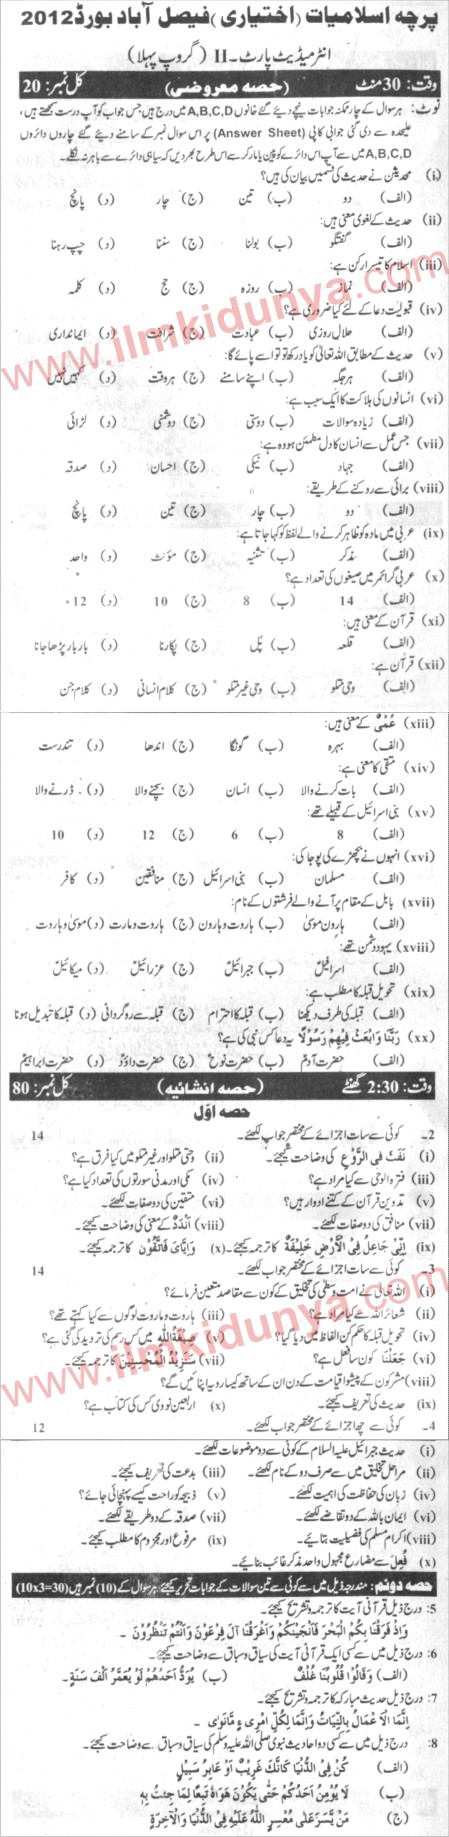 پرچہ اسلامیات (اختیاری) فیصل آباد بورڈ 2012
انٹرمیڈیٹ پارٹ۔ II (گروپ پہلا)
وقت: 30 منٹ (حصہ معروضی) کل نمبر: 20
نوٹ: ہر سوال کے چار ممکنہ جوابات نیچے دیئے گئے خانوں A,B,C,D میں درج ہیں جس جواب کو آپ درست سمجھتے ہیں،
علیحدہ سے دی گئی جوابی کاپی (Answer Sheet) پر اس سوال نمبر کے سامنے دیئے گئے چاروں دائروں
A,B,C,D میں سے آپ اس دائرے کو پین یا مارکر سے اس طرح بھر دیں کہ سیاہی دائرے سے باہر نہ نکلے۔
(i) محدثین نے حدیث کی قسمیں بیان کی ہیں:
(الف) دو (ب) تین (ج) چار (د) پانچ
(ii) حدیث کے لغوی معنی ہیں:
(الف) گفتگو (ب) بولنا (ج) سننا (د) چپ رہنا
(iii) اسلام کا تیسرا رکن ہے:
(الف) نماز (ب) روزہ (ج) حج (د) کلمہ
(iv) قبولیت دعا کے لئے کیا ضروری ہے؟
(الف) حلال روزی (ب) عبادت (ج) شرافت (د) ایمانداری
(v) حدیث کے مطابق اللہ تعالیٰ کو یاد رکھو تو اسے پائے گا:
(الف) ہر جگہ (ب) اپنے سامنے (ج) ہر وقت (د) کہیں نہیں
(vi) انسانوں کی ہلاکت کا ایک سبب ہے:
(الف) زیادہ سوالات (ب) دوستی (ج) دشمنی (د) لڑائی
(vii) جس عمل سے انسان کا دل مطمئن ہو وہ ہے:
(الف) جہاد (ب) نیکی (ج) احسان (د) صدقہ
(viii) برائی سے روکنے کے طریقے:
(الف) دو (ب) چار (ج) تین (د) پانچ
(ix) عربی میں مادہ کو ظاہر کرنے والے لفظ کو کہا جاتا ہے:
(الف) مذکر (ب) تثنیہ (ج) مؤنث (د) واحد
(x) عربی گرائمر میں صیغوں کی تعداد ہے؟
(الف) 14 (ب) 8 (ج) 10 (د) 12
(xi) قرآن کے معنی ہیں:
(الف) قلعہ (ب) پل (ج) پکارنا (د) بار بار پڑھا جانا
(xii) قرآن ہے:
(الف) وحی متلو (ب) وحی غیر متلو (ج) کلام انسانی (د) کلام جن
(xiii) عُمْیٌ کے معنی ہیں:
(الف) بہرہ (ب) گونگا (ج) اندھا (د) تندرست
(xiv) متقی کا معنی ہے:
(الف) بات کرنے والا (ب) انسان (ج) بچنے والا (د) ڈرنے والا
(xv) بنی اسرائیل کے قبیلے تھے:
(الف) 8 (ب) 6 (ج) 12 (د) 10
(xvi) انہوں نے بچھڑے کی پوجا کی:
(الف) مسلمان (ب) بنی اسرائیل (ج) منافقین (د) کافر
(xvii) بابل کے مقام پر آنے والے فرشتوں کے نام:
(الف) ہارون موسیٰ (ب) ہاروت و ہارون (ج) ہاروت و ماروت (د) موسیٰ و ہاروت
(xviii) یہود دشمن تھے:
(الف) اسرافیلؑ (ب) جبرائیلؑ (ج) عزرائیلؑ (د) میکائیلؑ
(xix) تحویل قبلہ کا مطلب ہے:
(الف) قبلہ کی طرف دیکھنا (ب) قبلہ کا احترام (ج) قبلہ سے روگردانی (د) قبلہ کا تبدیل ہونا
(xx) رَبَّنَا وَابْعَثْ فِیْهِمْ رَسُوْلًا یہ دعا کس نبی کی ہے؟
(الف) حضرت آدمؑ (ب) حضرت نوحؑ (ج) حضرت داؤدؑ (د) حضرت ابراہیمؑ
وقت: 2:30 گھنٹے (حصہ انشائیہ) کل نمبر: 80
حصہ اوّل
2۔ کوئی سے سات اجزائے کے مختصر جواب لکھئے۔ 14
(i) نَفَثَ فِی الرُّوْعِ کی وضاحت کیجئے۔ (ii) وحی متلو اور غیر متلو میں کیا فرق ہے؟
(iii) فترۃ الوحی سے کیا مراد ہے؟ (iv) مکی اور مدنی سورتوں کی تعداد کیا ہے؟
(v) تدوین قرآن کے کتنے ادوار ہیں؟ (vi) متقین کی دو صفات لکھئے۔
(vii) منافق کی دو صفات لکھئے۔ (viii) اَنْدَادً کے معنی کی وضاحت کیجئے۔
(ix) اِنِّیْ جَاعِلٌ فِی الْاَرْضِ خَلِیْفَةً کا ترجمہ کیجئے۔ (x) وَاِیَّایَ فَاتَّقُوْنِ کا ترجمہ کیجئے۔
3۔ کوئی سے سات اجزائے کے مختصر جواب لکھئے۔ 14
(i) اللہ تعالیٰ نے امت وسطیٰ کی تخلیق کے کون سے مقاصد متعین فرمائے؟
(ii) شعائر اللہ سے کیا مراد ہے؟ (iii) ہاروت و ماروت لوگوں سے کیا کہتے تھے؟
(iv) تحویل قبلہ کا حکم کن الفاظ میں دیا گیا؟ (v) صِبْغَةَ اللّٰهِ میں کس رسم کی تردید کی گئی ہے؟
(vi) جَعَلْنَا کون سا فعل ہے؟ (vii) سَنَزِیْدُ الْمُحْسِنِیْنَ کا ترجمہ کیجئے۔
(viii) مشرکوں کے پیشوا قیامت کے دن ان کے ساتھ کیسا رویہ اپنائیں گے؟
(ix) حدیث کی تعریف کیجئے۔ (x) اربعین نووی کس کی کتاب ہے؟
4۔ کوئی سے چھ اجزائے کے مختصر جواب لکھئے۔ 12
(i) حدیث جبرائیل علیہ السلام کے کوئی سے دو موضوعات لکھئے۔
(ii) مراحل تخلیق میں سے صرف دو کے نام لکھئے۔ (iii) بدعت کی تعریف کیجئے۔
(iv) زبان کی حفاظت کی اہمیت لکھئے۔ (v) ذبیحہ کو راحت کیسے پہنچائی جائے؟
(vi) ایمان باللہ کے دو تقاضے لکھئے۔ (vii) صدقہ کے دو طریقے لکھئے۔
(viii) اکرام مسلم کی فضیلت بتائیے۔ (ix) مرفوع اور مجزوم کا مطلب کیجئے۔
(x) فُعِلَ سے مضارع مجہول واحد مذکر غائب بنائیے۔
حصہ دوئم: مندرجہ ذیل میں سے کوئی سے تین سوالات کے جوابات تحریر کیجئے، ہر سوال کے (10) نمبر ہیں (10x3=30)
5: درج ذیل قرآنی آیت کا ترجمہ و تشریح کیجئے۔
وَاِذْ فَرَقْنَا بِکُمُ الْبَحْرَ فَاَنْجَیْنٰکُمْ وَاَغْرَقْنَا اٰلَ فِرْعَوْنَ وَاَنْتُمْ تَنْظُرُوْنَ۔
6: درج ذیل میں سے کسی ایک قرآنی آیت کی سیاق و سباق سے وضاحت کیجئے۔
(الف) وَقَالُوْا قُلُوْبُنَا غُلْفٌ (ب) یَوَدُّ اَحَدُهُمْ لَوْ یُعَمَّرُ اَلْفَ سَنَةٍ۔
7: درج ذیل حدیث مبارکہ کا ترجمہ و تشریح کیجئے۔
اِنَّمَا الْاَعْمَالُ بِالنِّیَّاتِ وَاِنَّمَا لِکُلِّ امْرِیءٍ مَّانَوٰی۔
8: درج ذیل میں سے کسی دو احادیث نبوی صلی اللہ علیہ وسلم کی سیاق و سباق سے وضاحت کیجئے۔
(الف) کُنْ فِی الدُّنْیَا کَاَنَّکَ غَرِیْبٌ اَوْ عَابِرُ سَبِیْلٍ
(ب) لَا یُؤْمِنُ اَحَدُکُمْ حَتّٰی یَکُوْنَ هَوَاهُ تَبَعًا لِمَا جِئْتُ بِهٖ
(ج) مَنْ یَّسَّرَ عَلٰی مُعْسِرٍ یَسَّرَ اللّٰهُ عَلَیْهِ فِی الدُّنْیَا وَالْاٰخِرَةِ
www.ilmkidunya.com
www.ilmkidunya.com